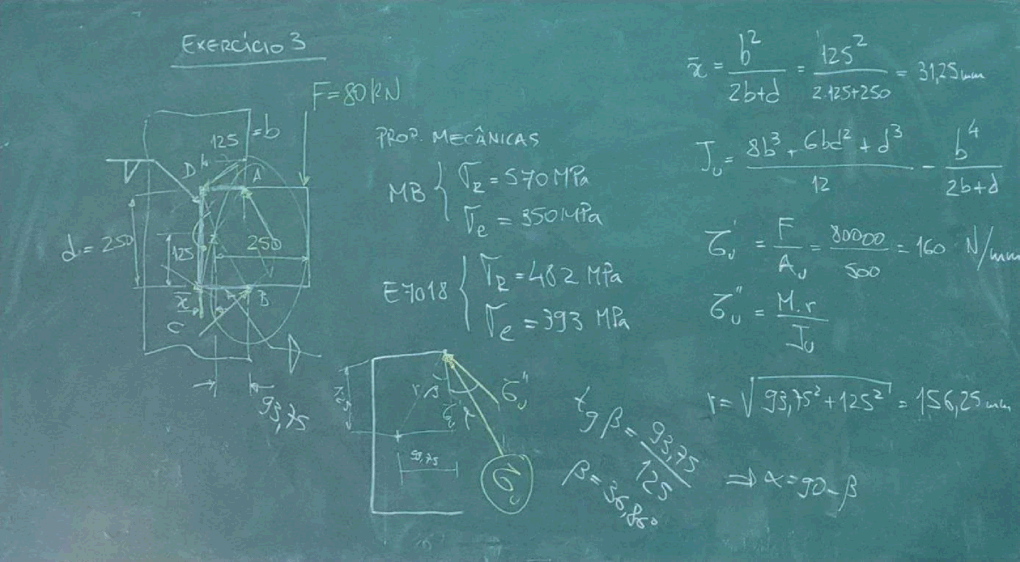 EXERCÍCIO 3
F=80KN
125 =b
D
A
d=250
125
250
x̄
B
C
93,75
PROP. MECÂNICAS
MB { σR=570MPa
σe=350MPa
E7018 { σR=482 MPa
σe=393 MPa
r β
93,75
τu''
tg β = 93,75/125
β=36,86°
⇒ α=90-β
x̄ = b²/2b+d = 125²/2.125+250 = 31,25mm
Ju = 8b³+6bd²+d³/12 - b⁴/2b+d
τu' = F/Au = 80000/500 = 160 N/mm
τu'' = M.r/Ju
r=√93,75²+125² = 156,25mm